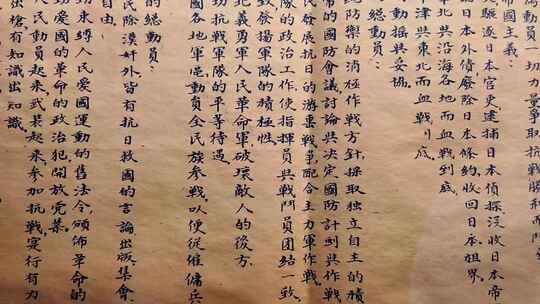 動員一切力量爭取抗戰勝利而鬥
驅逐日本官吏逮捕日本偵探沒收日本帝
國主義:
日本外債廢除日本條約收回日本租界。
北與沿海各地而血戰到底
津與東北而血戰到底。
動搖與妥協。
總動員:
防禦的消極作戰方針,採取独立自主的積
的國防會議討論與決定國防計劃與作戰
民發展抗日的游擊戰爭配合主力軍作戰。
隊的政治工作使指揮員與戰鬥員團結一致。
致發揚軍隊的積極性。
北義勇軍人民革命軍破壞敵人的後方。
抗戰軍隊的平等待遇。
國各地軍區,動員全民族參戰,以便從僱傭兵
的總動員:
民除漢奸外皆有抗日救國的言論出版集會、
自由。
束縛人民愛國運動的舊法令,頒佈革命的
愛國的革命的政治犯開放党禁。
人民動員起來,武裝起來參加抗戰,实行有力
出槍有知識出知識。